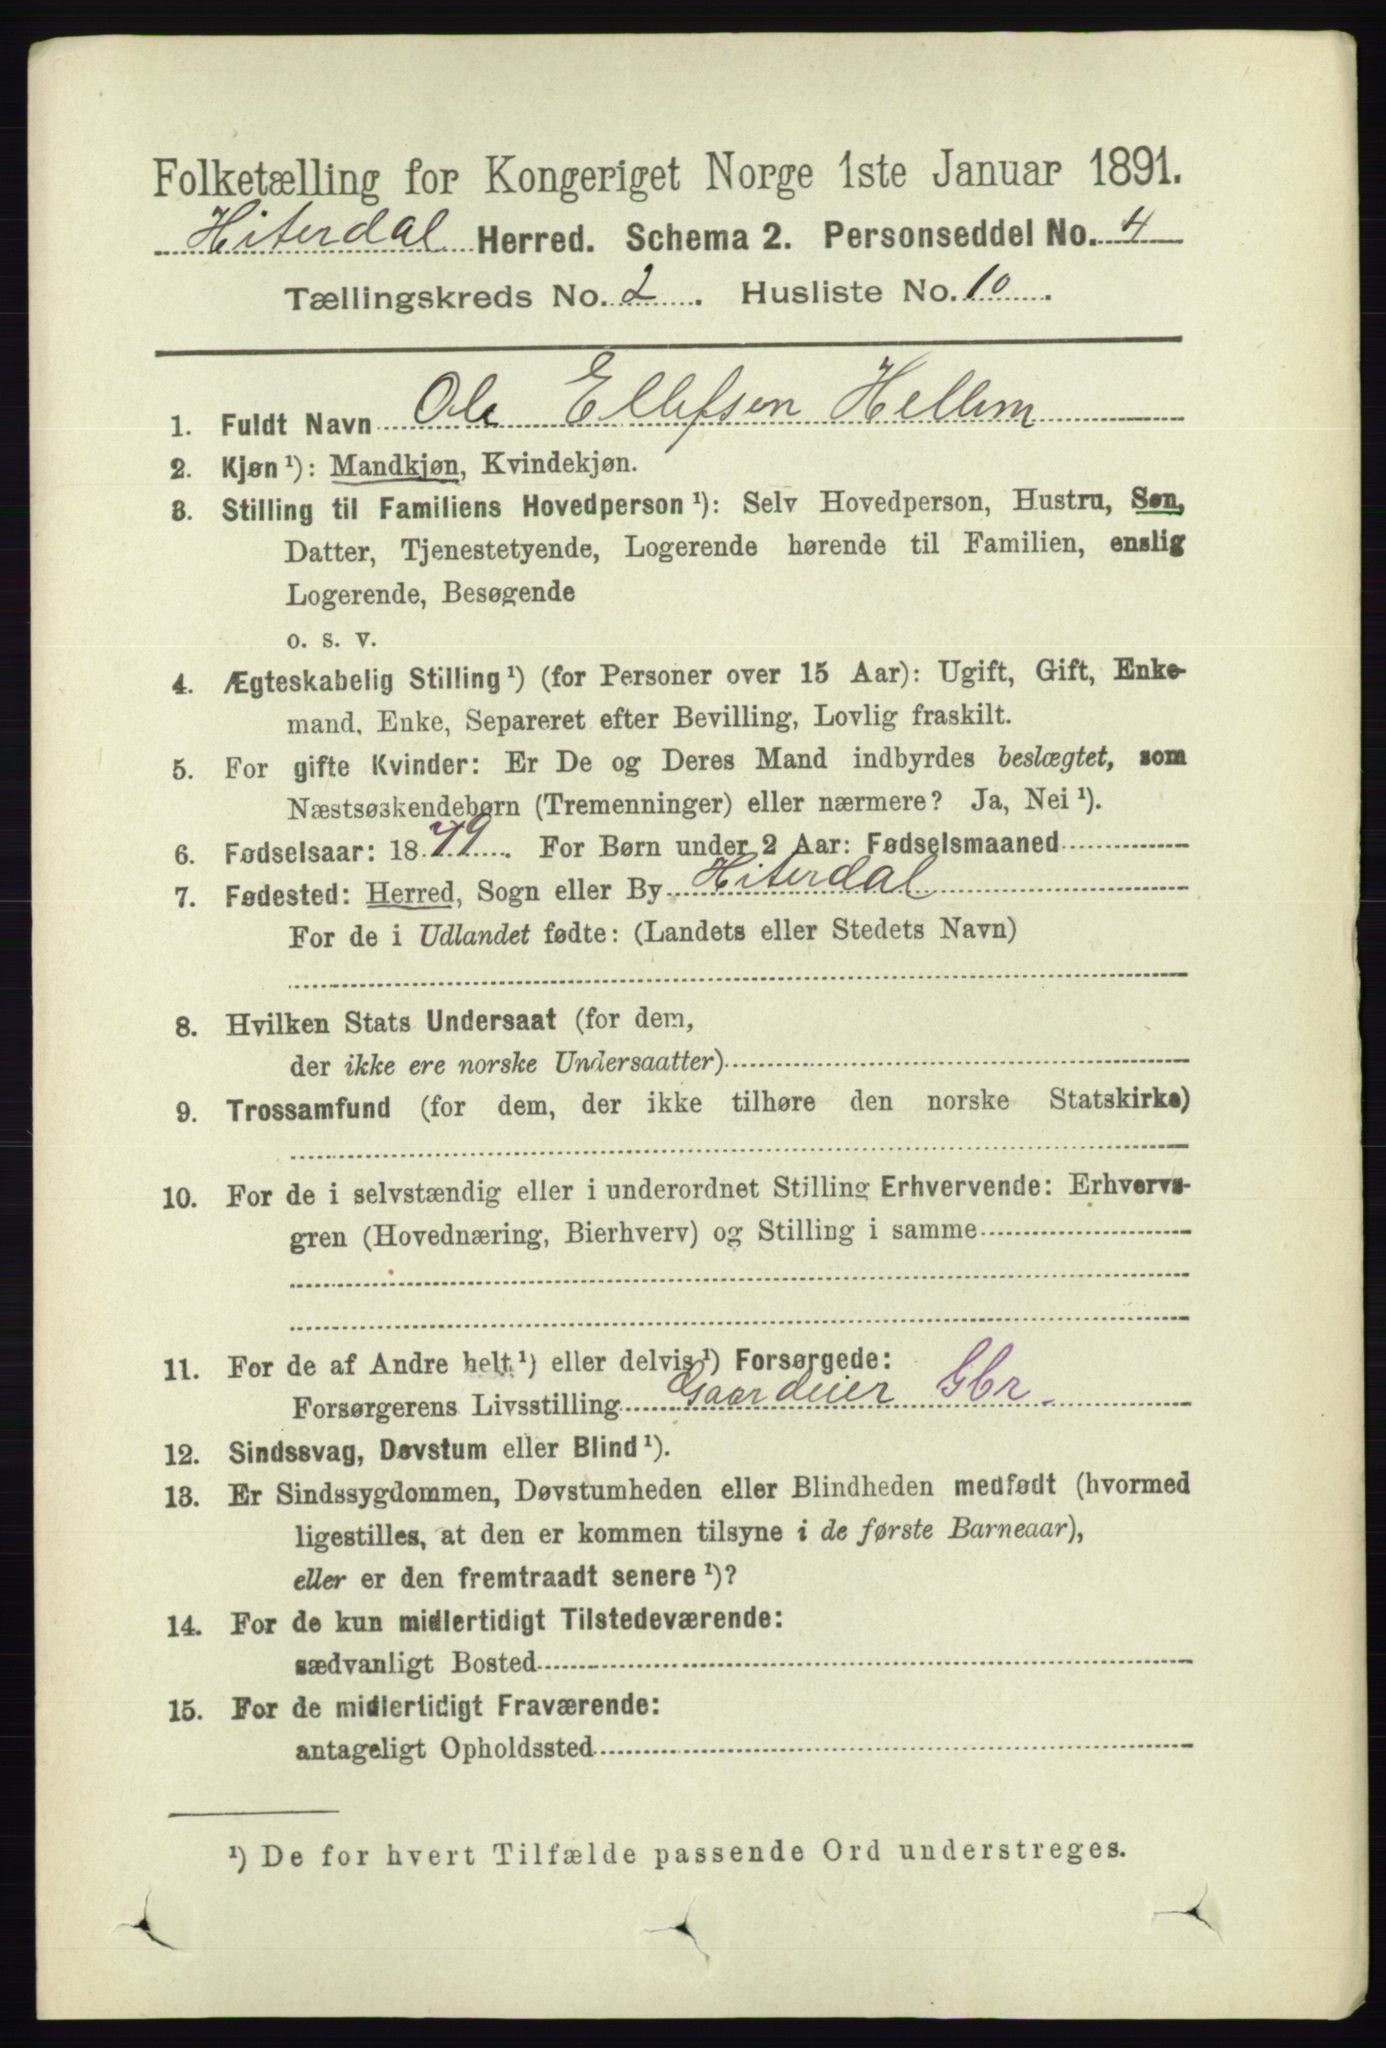 Folketælling for Kongeriget Norge 1ste Januar 1891.
Hiterdal Herred. Schema 2. Personseddel No. 4
Tællingskreds No. 2. Husliste No. 10.
1. Fuldt Navn Ole Ellefsen Hellem
2. Kjøn ¹): Mandkjøn, Kvindekjøn.
3. Stilling til Familiens Hovedperson ¹): Selv Hovedperson, Hustru, Søn,
Datter, Tjenestetyende, Logerende hørende til Familien, enslig
Logerende, Besøgende
o. s. v.
4. Ægteskabelig Stilling ¹) (for Personer over 15 Aar): Ugift, Gift, Enke-
mand, Enke, Separeret efter Bevilling, Lovlig fraskilt.
5. For gifte Kvinder: Er De og Deres Mand indbyrdes beslægtet, som
Næstsøskendebørn (Tremenninger) eller nærmere? Ja, Nei ¹).
6. Fødselsaar: 1879. For Børn under 2 Aar: Fødselsmaaned
7. Fødested: Herred, Sogn eller By Hiterdal
For de i Udlandet fødte: (Landets eller Stedets Navn)
8. Hvilken Stats Undersaat (for dem,
der ikke ere norske Undersaatter)
9. Trossamfund (for dem, der ikke tilhøre den norske Statskirke)
10. For de i selvstændig eller i underordnet Stilling Erhvervende: Erhvervs-
gren (Hovednæring, Bierhverv) og Stilling i samme
11. For de af Andre helt ¹) eller delvis ¹) Forsørgede:
Forsørgerens Livsstilling Gaardeier Gbr.
12. Sindssvag, Døvstum eller Blind ¹).
13. Er Sindssygdommen, Døvstumheden eller Blindheden medfødt (hvormed
ligestilles, at den er kommen tilsyne i de første Barneaar),
eller er den fremtraadt senere ¹)?
14. For de kun midlertidigt Tilstedeværende:
sædvanligt Bosted
15. For de midlertidigt Fraværende:
antageligt Opholdssted
¹) De for hvert Tilfælde passende Ord understreges.